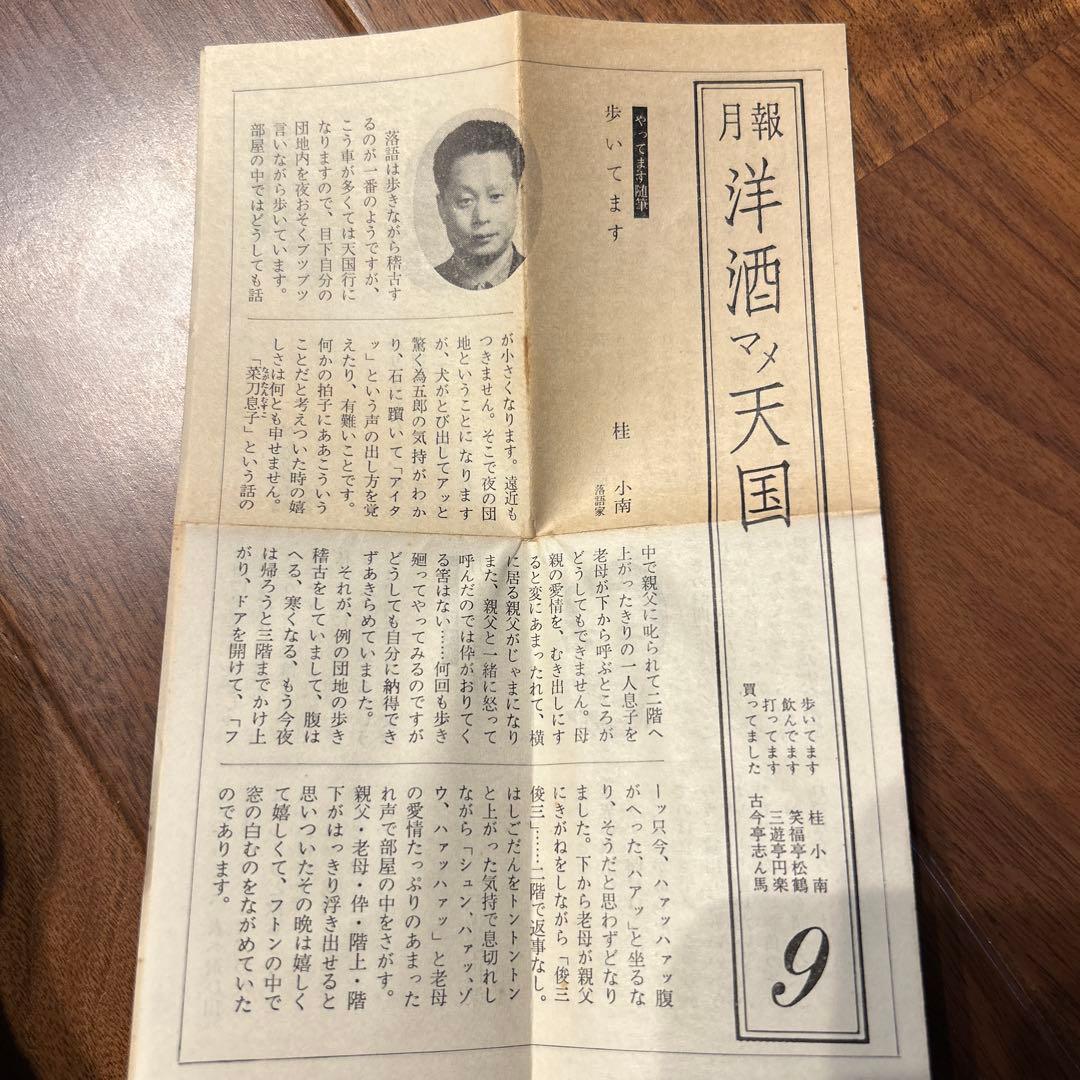 月報
洋酒マメ天国
歩いてます　桂　小南
飲んでます　笑福亭松鶴
打ってます　三遊亭円楽
買ってました　古今亭志ん馬
9
やってます随筆
歩いてます
桂　小南
落語家
落語は歩きながら稽古す
るのが一番のようですが、
こう車が多くては天国行に
なりますので、目下自分の
団地内を夜おそくブツブツ
言いながら歩いています。
部屋の中ではどうしても話
が小さくなります。遠近も
つきません。そこで夜の団
地ということになります
が、犬がとび出してアッと
驚く為五郎の気持がわか
り、石に躓いて「アイタ
ッ」という声の出し方を覚
えたり、有難いことです。
何かの拍子にああこういう
ことだと考えついた時の嬉
しさは何とも申せません。
「菜刀息子」という話の
ながたんむすこ
中で親父に叱られて二階へ
上がったきりの一人息子を
老母が下から呼ぶところが
どうしてもできません。母
親の愛情を、むき出しにす
ると変にあまったれて、横
に居る親父がじゃまになり
また、親父と一緒に怒って
呼んだのでは伜がおりてく
る筈はない……何回も歩き
廻ってやってみるのですが
どうしても自分に納得でき
ずあきらめていました。
それが、例の団地の歩き
稽古をしていまして、腹は
へる、寒くなる、もう今夜
は帰ろうと三階までかけ上
がり、ドアを開けて、「フ
ーッ只今、ハァッハァッ腹
がへった、ハアッ」と坐るな
り、そうだと思わずどなり
ました。下から老母が親父
にきがねをしながら「俊三
俊三」……二階で返事なし。
はしごだんをトントントン
と上がった気持で息切れし
ながら「シュン、ハァッ、ゾ
ウ、ハァッハァッ」と老母
の愛情たっぷりのあまった
れ声で部屋の中をさがす。
親父・老母・伜・階上・階
下がはっきり浮き出せると
思いついたその晩は嬉しく
て嬉しくて、フトンの中で
窓の白むのをながめていた
のであります。